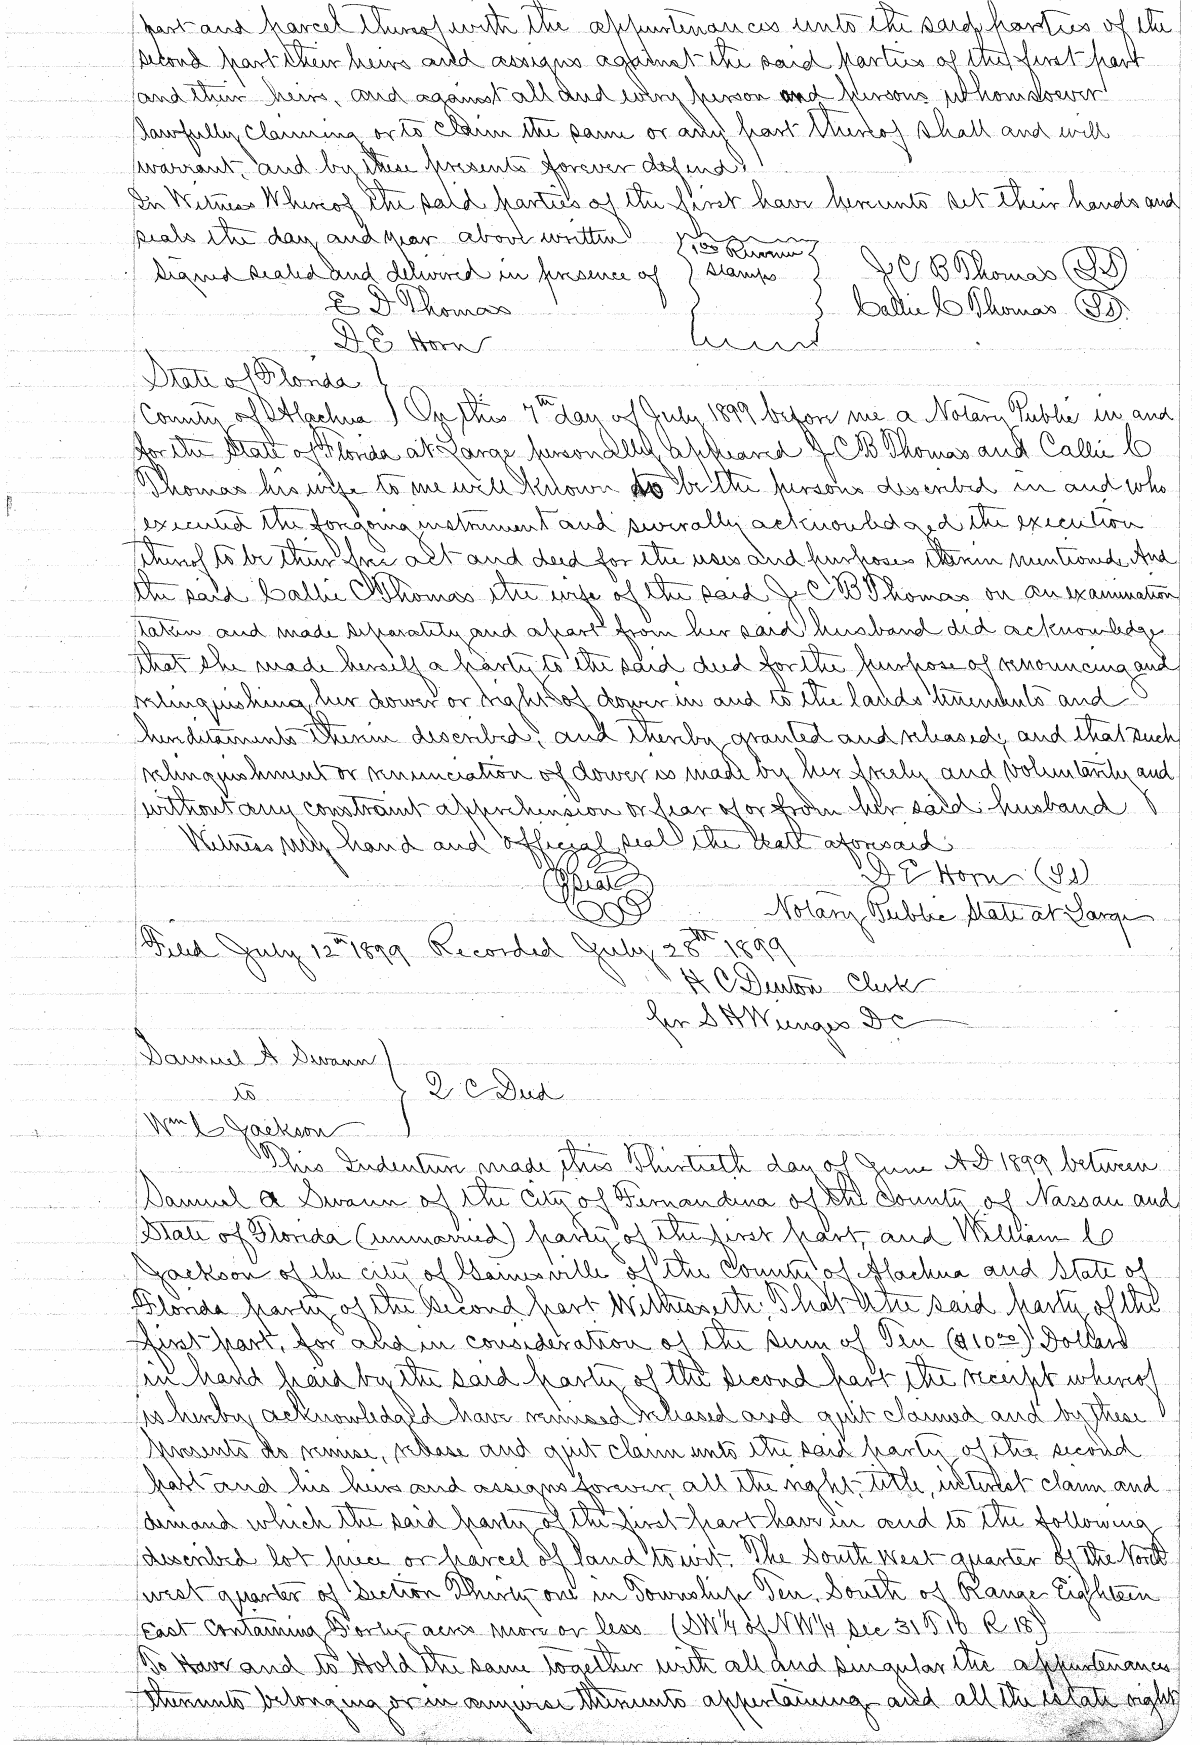 part and parcel thereof with the appurtenances unto the said parties of the
second part their heirs and assigns against the said parties of the first part
and their heirs, and against all and every person and persons whomsoever
lawfully claiming or to claim the same or any part thereof shall and will
warrant, and by these presents forever defend.
In Witness Whereof the said parties of the first have hereunto set their hands and
seals the day and year above written
1 00 Revenue
stamps
Signed sealed and delivered in presence of
J C B Thomas (LS)
E D Thomas
Callie C Thomas (LS)
D E Horn
State of Florida
County of Alachua } On this 7th day of July 1899 before me a Notary Public in and
for the State of Florida at Large personally appeared J C B Thomas and Callie C
Thomas his wife to me well known to be the persons described in and who
executed the forgoing instrument and severally acknowledged the execution
thereof to be their free act and deed for the uses and purposes therein mentioned. And
the said Callie C Thomas the wife of the said J C B Thomas on an examination
taken and made separately and apart from her said husband did acknowledge
that she made herself a party to the said deed for the purpose of renouncing and
relinquishing her dower or right of dower in and to the lands tenements and
hereditaments therein described, and thereby granted and released, and that such
relinquishment or renunciation of dower is made by her freely and voluntarily and
without any constraint apprehension or fear of or from her said husband
Witness my hand and official seal the date aforesaid
(Seal)
D E Horn (LS)
Notary Public State at Large
Filed July 12th 1899 Recorded July 28th 1899
H C Denton Clerk
per S H Wienges D C
Samuel A Swann
to } Q C Deed
Wm C Jackson
This Indenture made this Thirtieth day of June A D 1899 between
Samuel A Swann of the City of Fernandina of the County of Nassau and
State of Florida (unmarried) party of the first part, and William C
Jackson of the city of Gainesville of the County of Alachua and State of
Florida party of the second part Witnesseth. That the said party of the
first part, for and in consideration of the sum of Ten ($10 00) Dollars
in hand paid by the said party of the second part the receipt whereof
is hereby acknowledged have remised released and quit claimed and by these
presents do remise, release and quit claim unto the said party of the second
part and his heirs and assigns forever, all the right, title, interest claim and
demand which the said party of the first part have in and to the following
described lot piece or parcel of land to wit. The South West quarter of the North
west quarter of Section Thirty one in Township Ten, South of Range Eighteen
East Containing Forty acres more or less (SW¼ of NW¼ Sec 31 T 10 R 18)
To Have and to Hold the same together with all and singular the appurtenances
thereunto belonging or in anywise thereunto appertaining and all the estate right